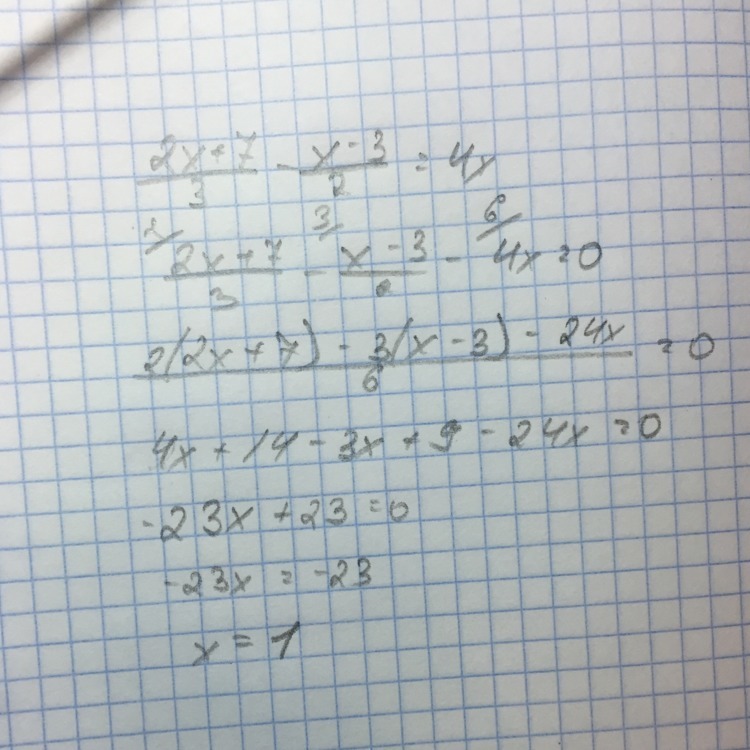 (2x+7)/3 - (x-3)/2 = 4x
2/ (2x+7)/3 - 3/ (x-3)/2 - 6/ 4x = 0
(2(2x+7) - 3(x-3) - 24x)/6 = 0
4x + 14 - 3x + 9 - 24x = 0
-23x + 23 = 0
-23x = -23
x = 1